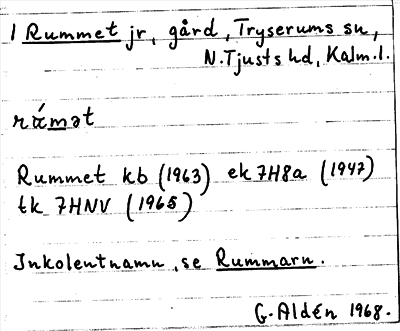 1 Rummet jr, gård, Tryserums sn,
N. Tjusts hd, Kalm. l.
rάmət
Rummet kb (1963) ek 7H8a (1947)
tk 7HNV (1965)
Inkolentnamn, se Rummarn.
G. Aldén 1968.